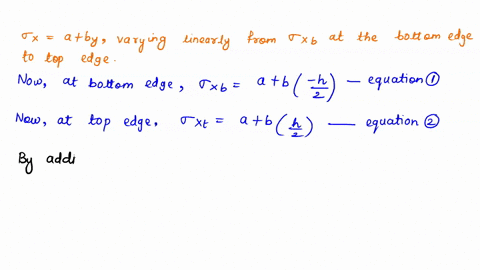 σx = a+by, varying linearly from σxb at the bottom edge
to top edge.
Now, at bottom edge, σxb = a+b(-h/2) — equation ①
Now, at top edge, σxt = a+b(h/2) — equation ②
By addi